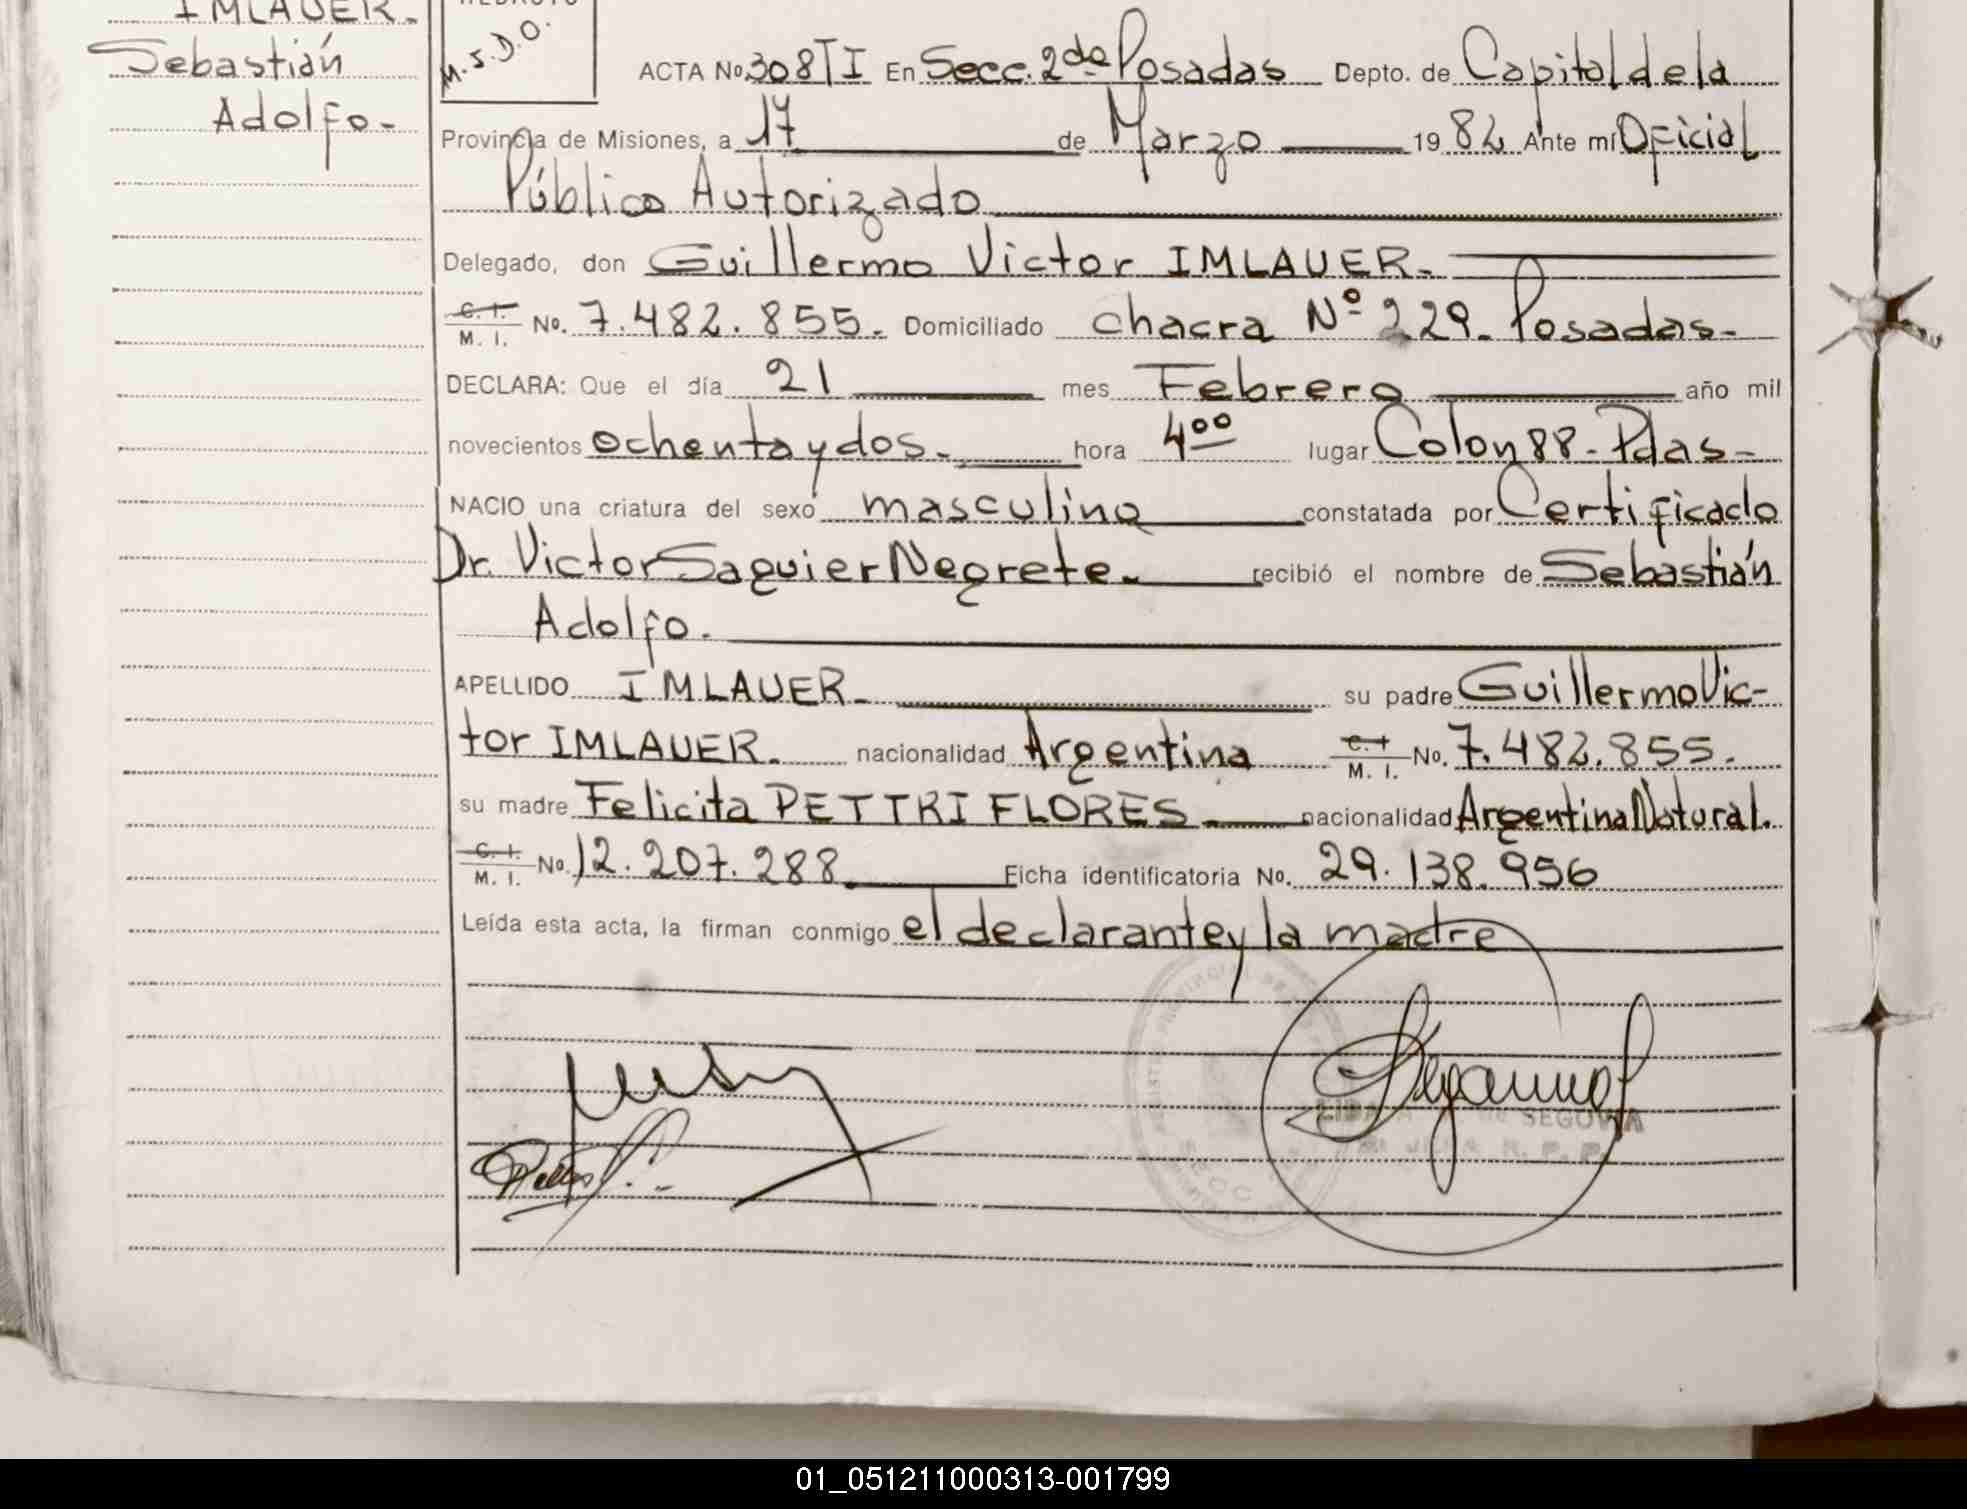 IMLAUER.
Sebastián
Adolfo-
M.S.D.O.
ACTA No. 308 T I En Secc. 2da Posadas Depto. de Capital de la
Provincia de Misiones, a 17 de Marzo 1982 Ante mí Oficial
Público Autorizado
Delegado, don Guillermo Victor IMLAUER.
C. I. M. I. No. 7.482.855. Domiciliado chacra Nº 229. Posadas-
DECLARA: Que el día 21 mes Febrero año mil
novecientos ochenta y dos. hora 4⁰⁰ lugar Colon 88-Pdas-
NACIO una criatura del sexo masculino constatada por Certificado
Dr. Victor Saguier Negrete. recibió el nombre de Sebastián
Adolfo.
APELLIDO IMLAUER. su padre Guillermo Vic-
tor IMLAUER. nacionalidad Argentina C. I. M. I. No. 7.482.855.
su madre Felicita PETTRI FLORES. nacionalidad Argentina Natural.
C. I. M. I. No. 12.207.288. Ficha identificatoria No. 29.138.956
Leída esta acta, la firman conmigo el declarante y la madre
de SEGOVIA
R. P. P.
01_051211000313-001799